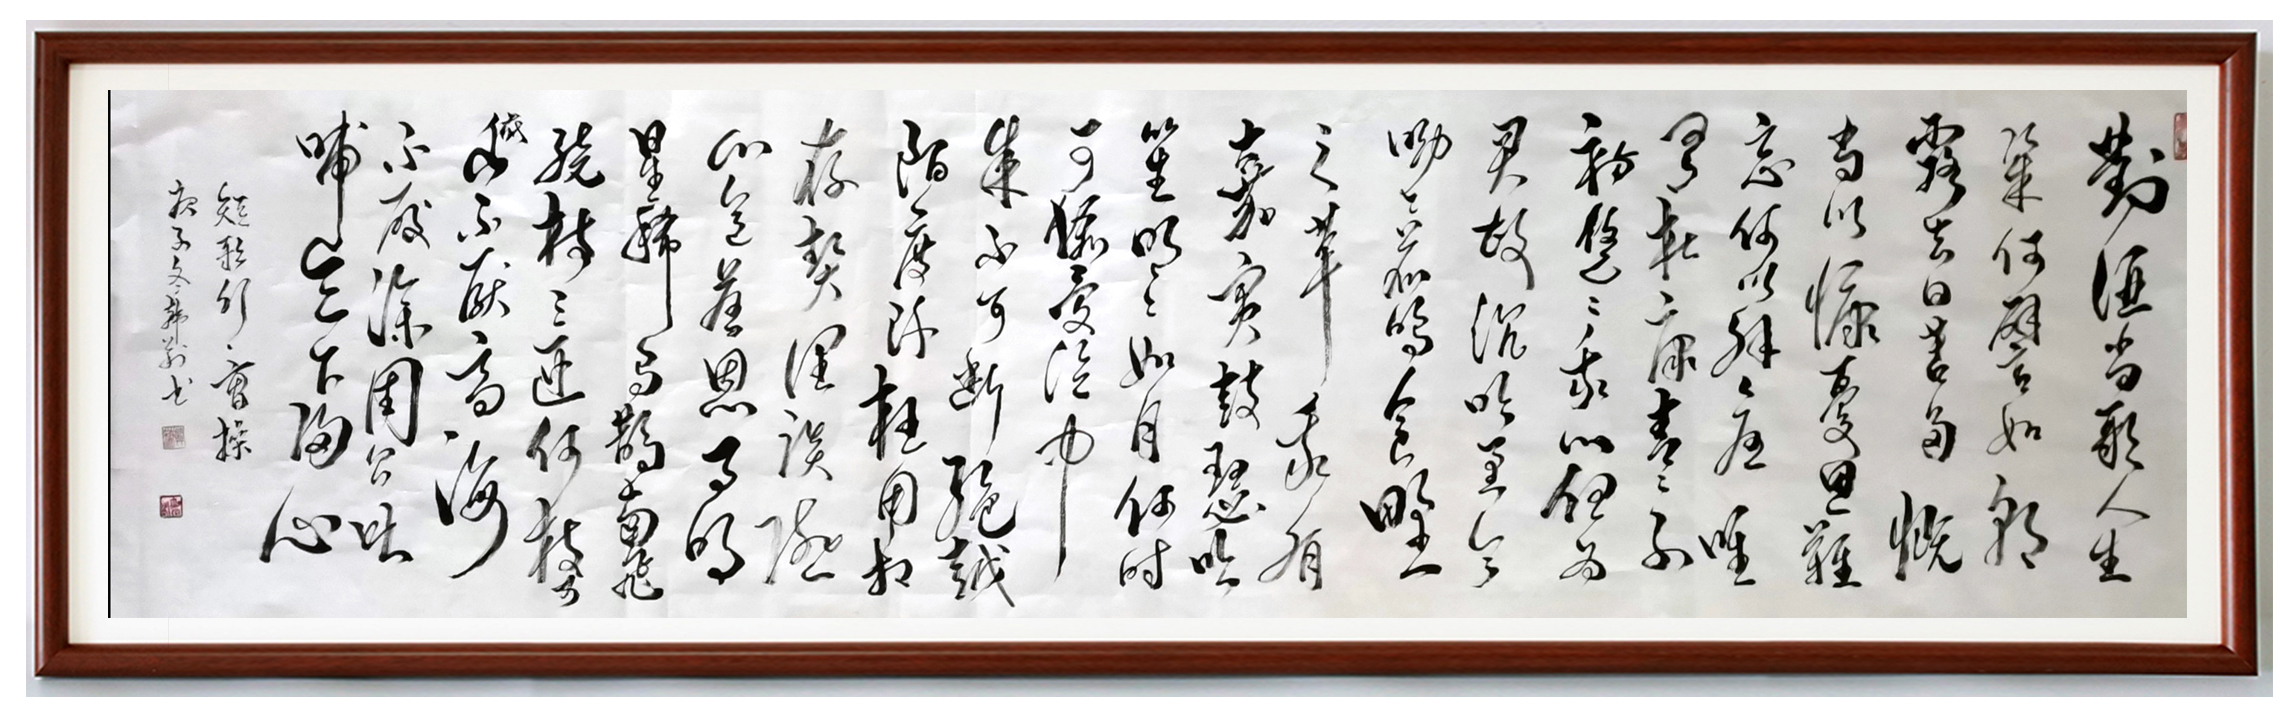 對酒當歌人生
幾何譬如朝
露去日苦多慨
當以慷憂思難
忘何以解憂唯
有杜康青々子
衿悠々我心但為
君故沉吟至今
呦々鹿鳴食野
之苹我有
嘉賓鼓瑟吹
笙明々如月何時
可掇憂從中
來不可斷絕越
陌度阡枉用相
存契闊談讌
心念舊恩月明
星稀烏鵲南飛
繞樹三匝何枝可
依山不厭高海
不厭深周公吐
哺天下歸心
短歌行曹操
庚子冬韓書